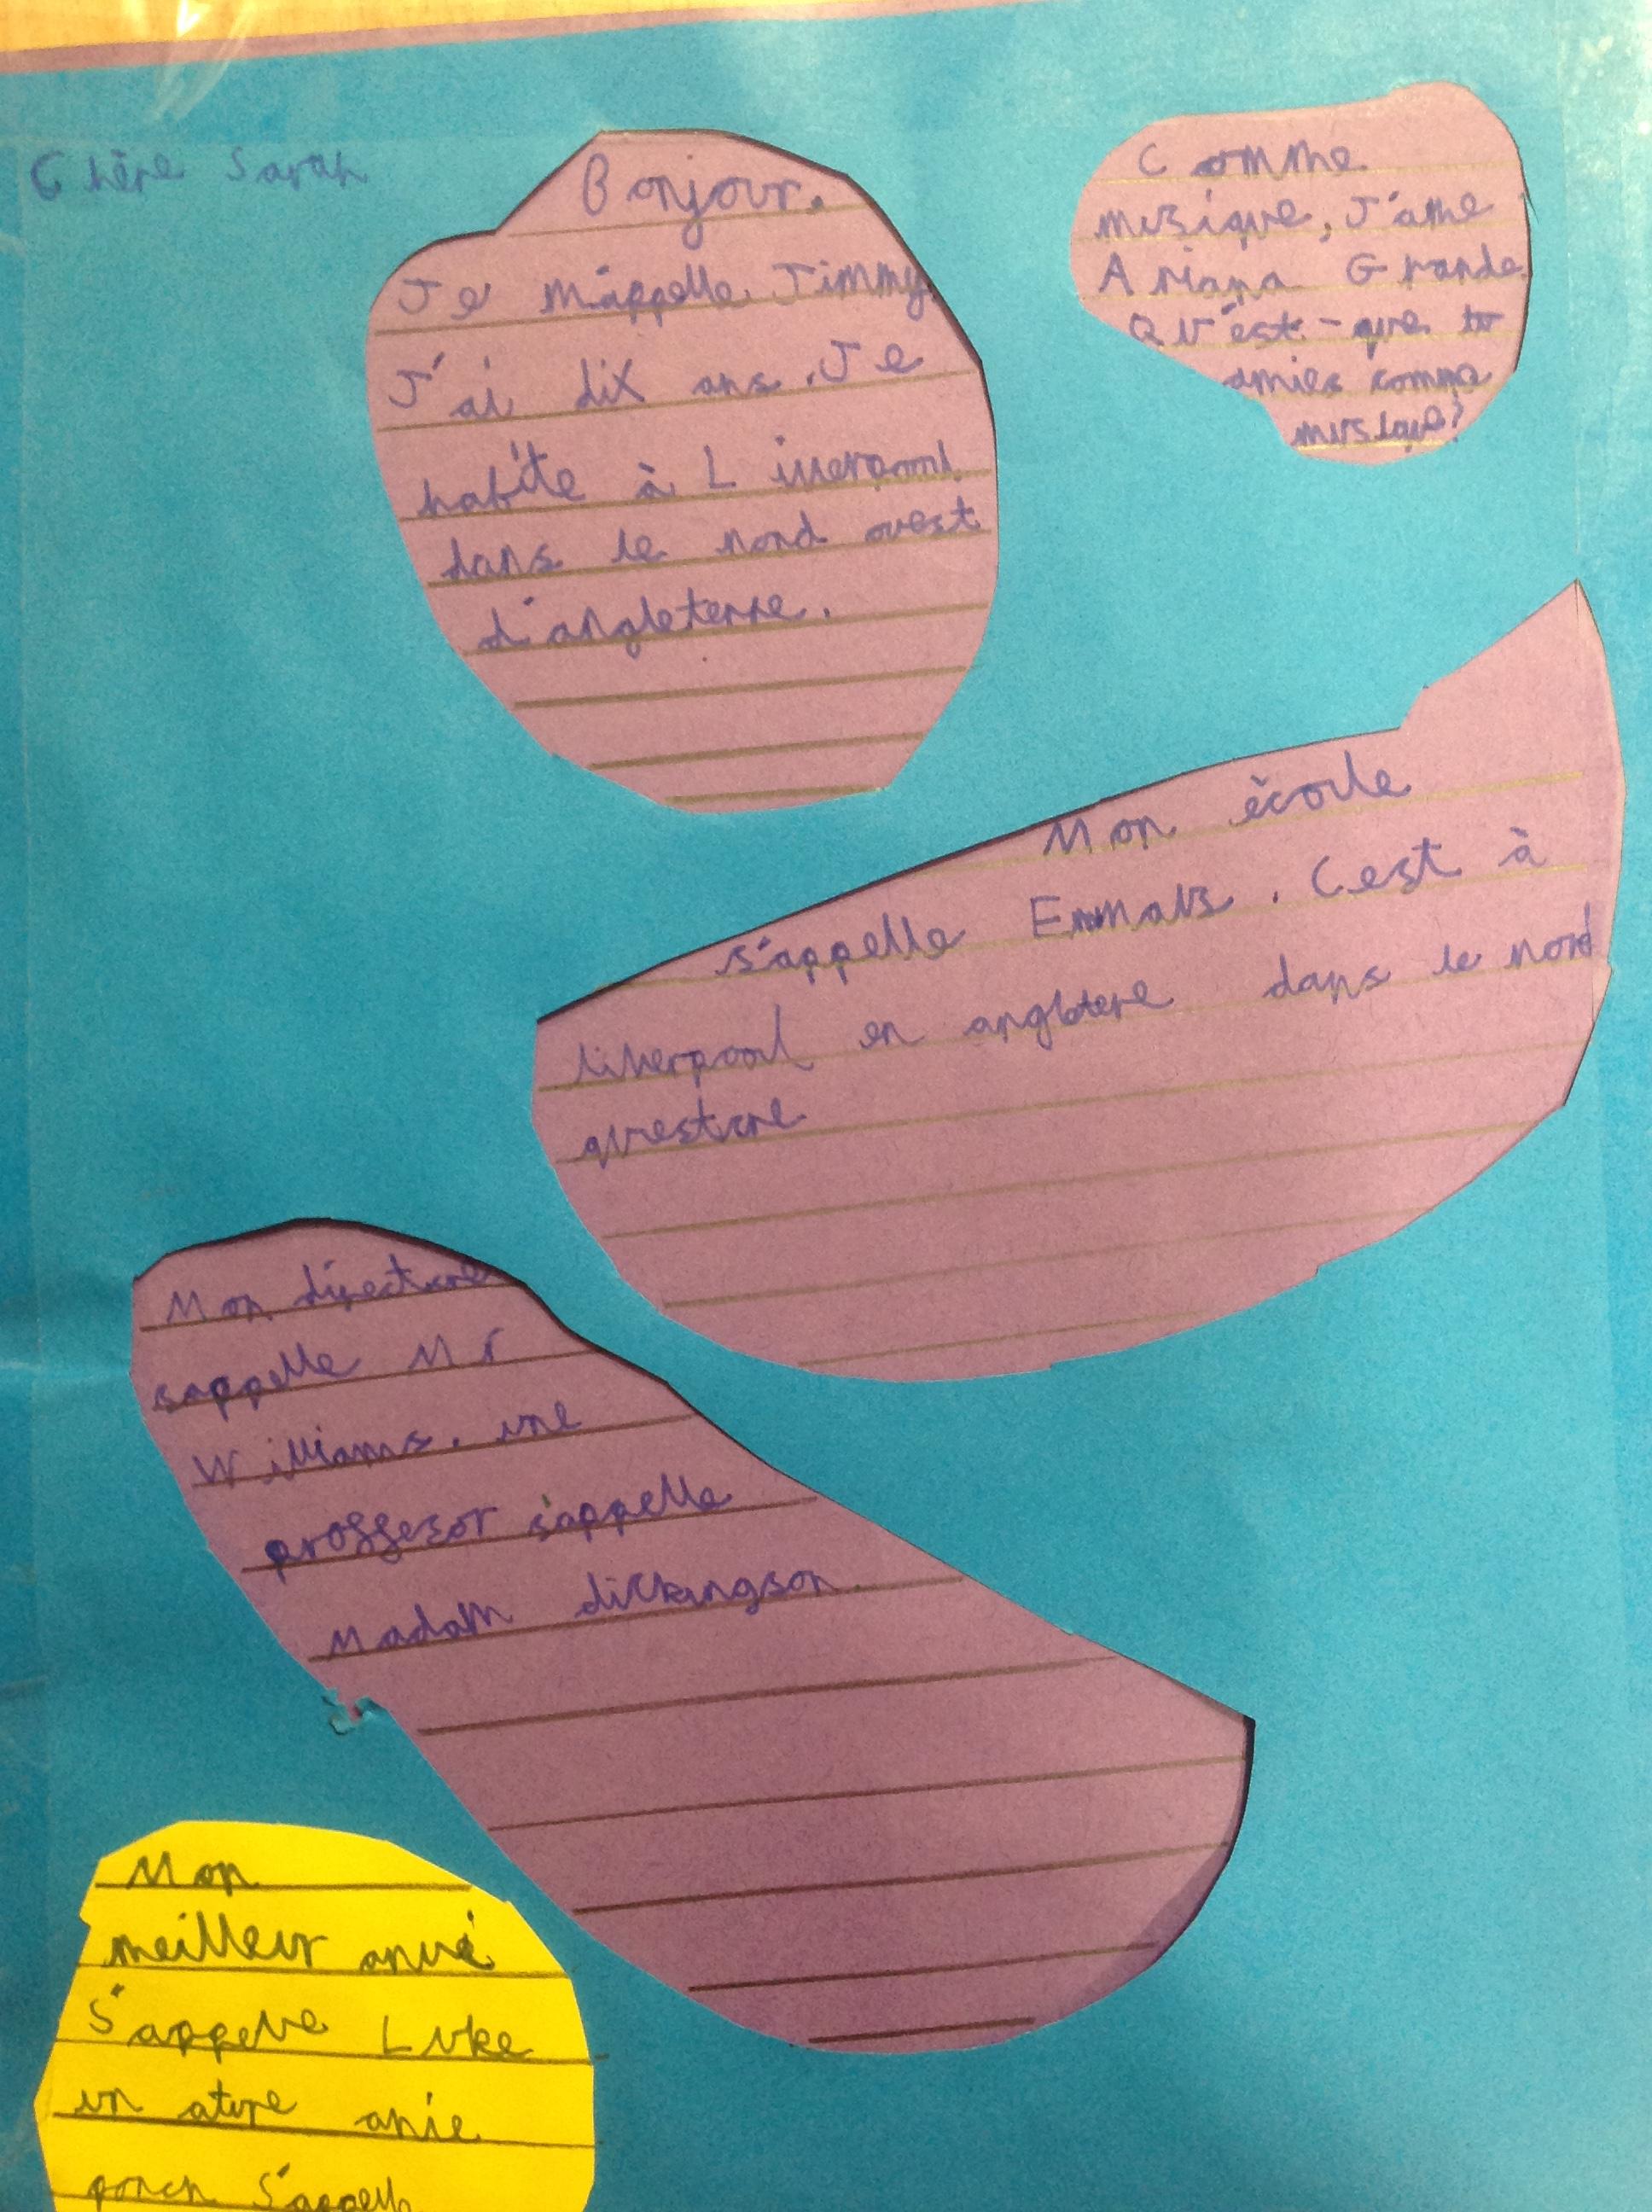 Chère Sarah
Bonjour.
Je m'appelle Jimmy
J'ai dix ans. Je
habite à Liverpool
dans le nord ouest
d'angleterre.
Comme
musique, J'ame
Ariana Grande.
Qu'est-que tu
amies comme
musique?
Mon ècole
s'appelle Emmaus. C'est à
liverpool en angletere dans le nord
Mon directure
sappelle Mr
Williams. une
proffesor s'appelle
Madam dickingson.
Mon
meilleur
s'appelle Luke
un ature amie
s'appelle